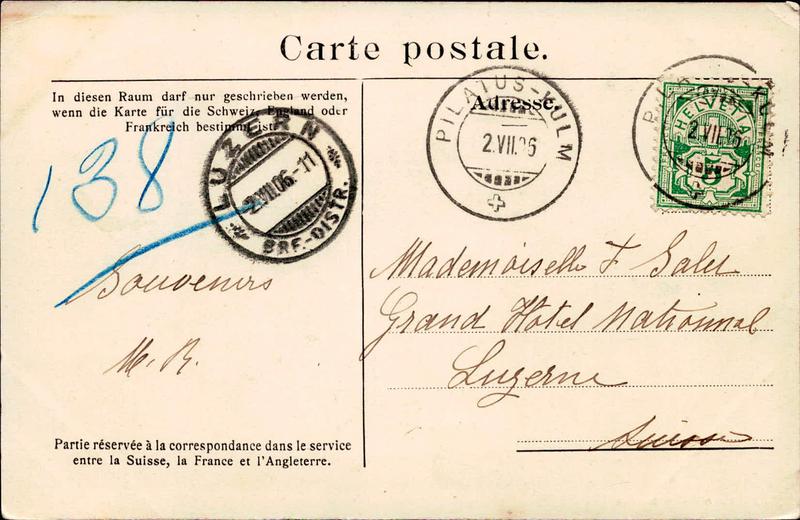 Carte postale.
In diesen Raum darf nur geschrieben werden,
wenn die Karte für die Schweiz, England oder
Frankreich bestimmt ist.
Adresse.
PILATUS-KULM
2.VII.06
PILATUS-KULM
2.VII.06
HELVETIA
5
LUZERN
2.VII.06.-11
BRF.-DISTR.
138
Souvenirs
M. R.
Mademoiselle F
Grand Hôtel National
Luzerne
Suisse
Partie réservée à la correspondance dans le service
entre la Suisse, la France et l'Angleterre.